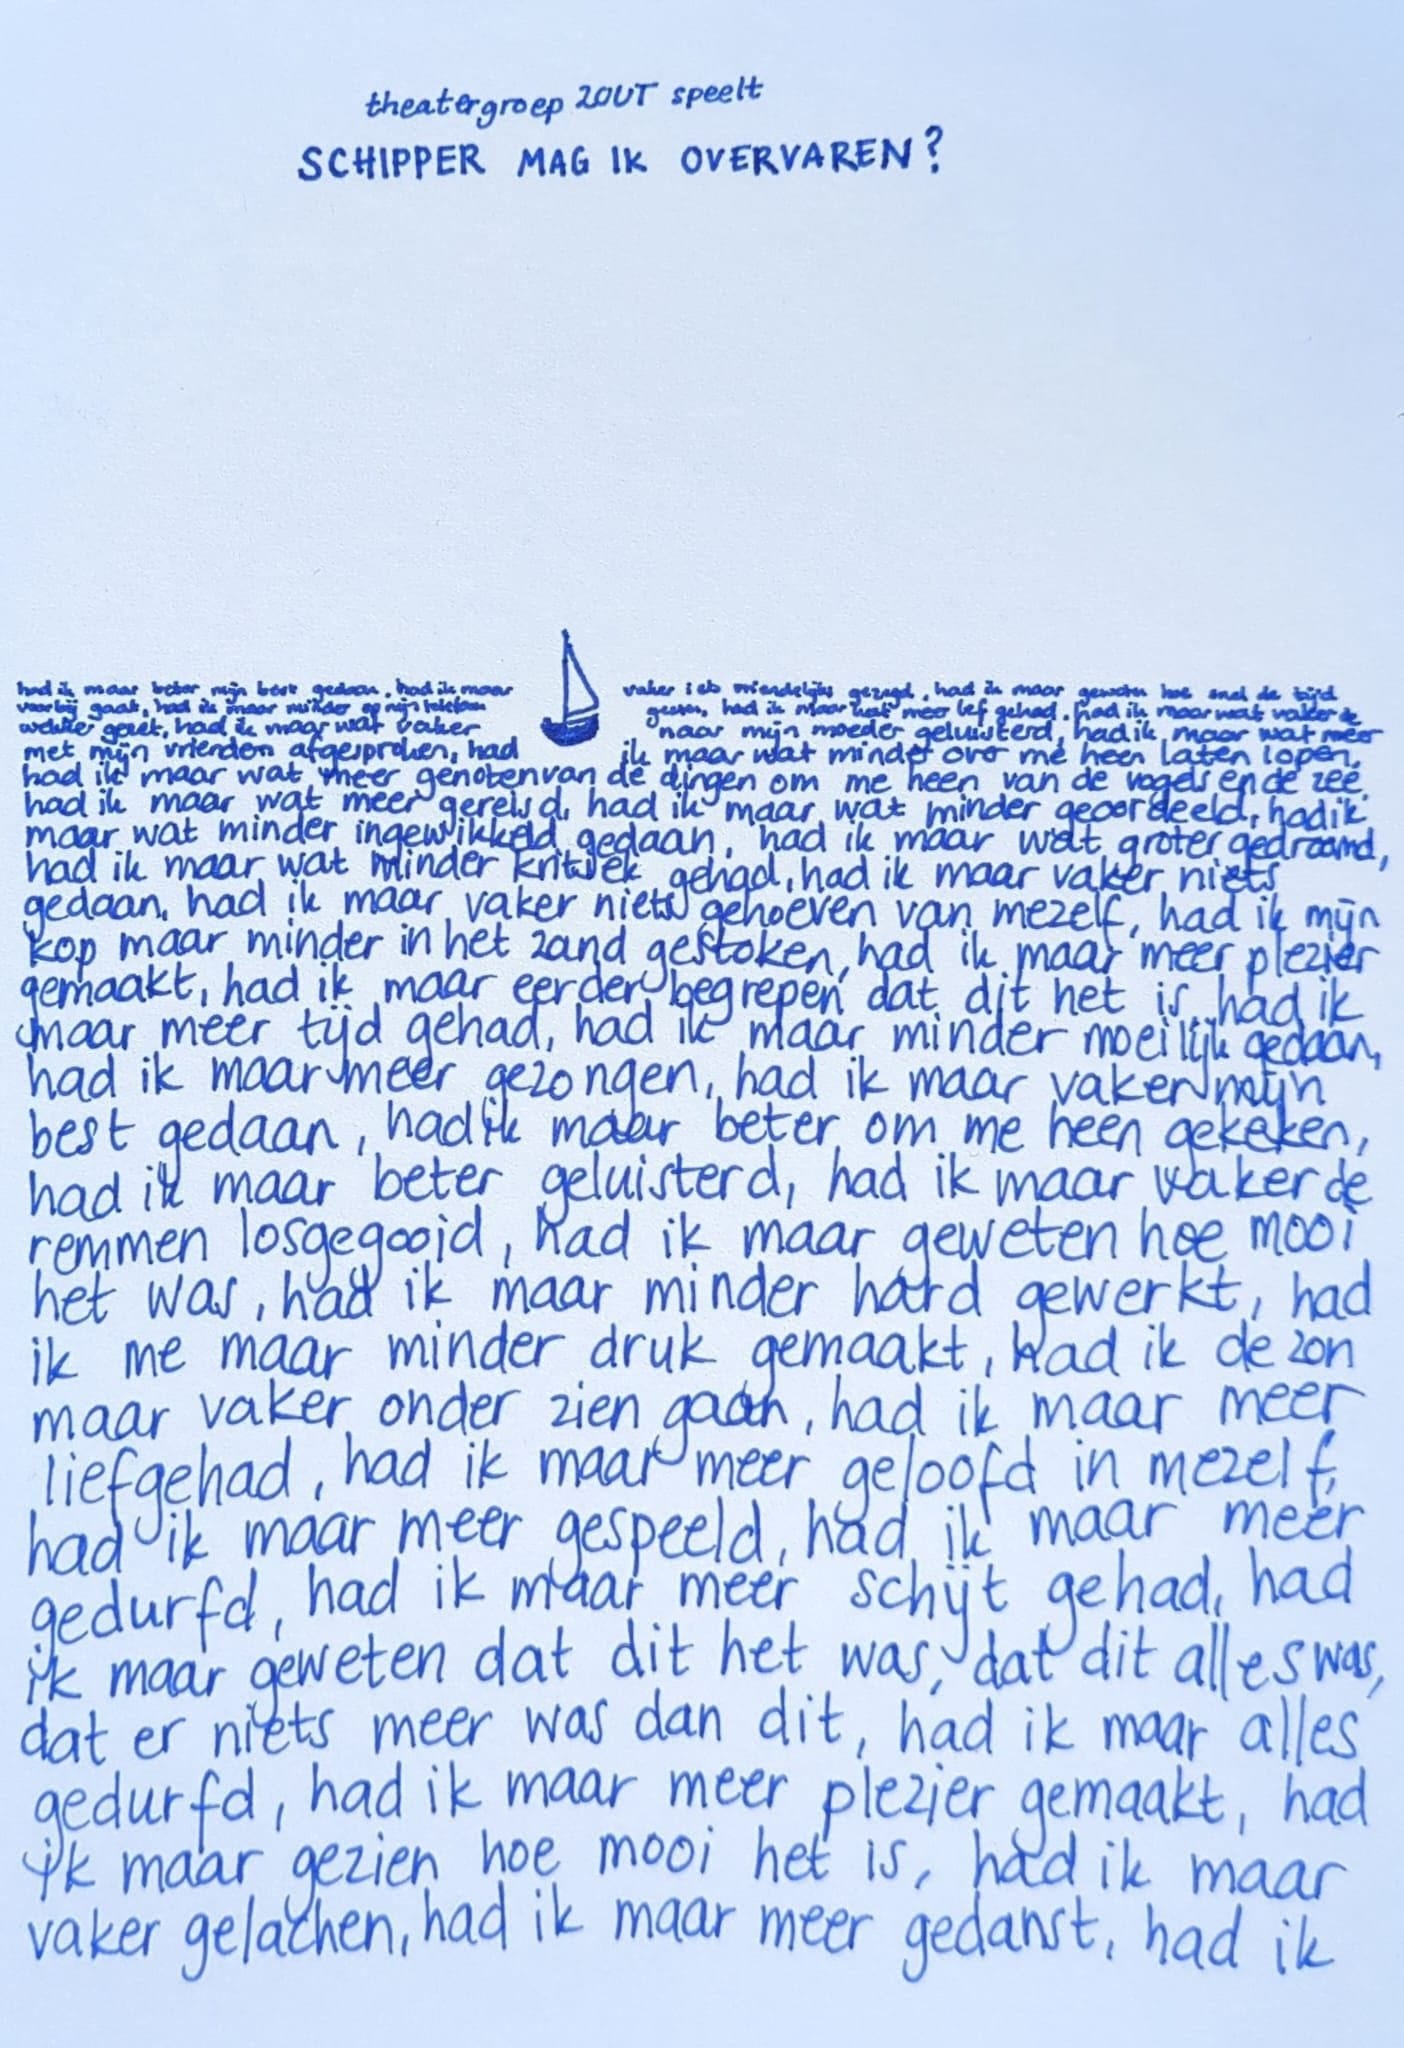 theatergroep ZOUT speelt
SCHIPPER MAG IK OVERVAREN?
had ik maar beter mijn best gedaan, had ik maar vaker iets vriendelijks gezegd, had ik maar geweten hoe snel de tijd
voorbij gaat, had ik maar minder op mijn telefoon gezeten, had ik maar wat meer lef gehad, had ik maar wat vaker de
wekker gezet, had ik maar wat vaker naar mijn moeder geluisterd, had ik maar wat meer
met mijn vrienden afgesproken, had ik maar wat minder over me heen laten lopen,
had ik maar wat meer genoten van de dingen om me heen van de vogels en de zee,
had ik maar wat meer gereisd, had ik maar wat minder geoordeeld, had ik
maar wat minder ingewikkeld gedaan, had ik maar wat groter gedroomd,
had ik maar wat minder kritiek gehad, had ik maar vaker niets
gedaan, had ik maar vaker niets gehoeven van mezelf, had ik mijn
kop maar minder in het zand gestoken, had ik maar meer plezier
gemaakt, had ik maar eerder begrepen dat dit het is, had ik
maar meer tijd gehad, had ik maar minder moeilijk gedaan,
had ik maar meer gezongen, had ik maar vaker mijn
best gedaan, had ik maar beter om me heen gekeken,
had ik maar beter geluisterd, had ik maar vaker de
remmen losgegooid, had ik maar geweten hoe mooi
het was, had ik maar minder hard gewerkt, had
ik me maar minder druk gemaakt, had ik de zon
maar vaker onder zien gaan, had ik maar meer
liefgehad, had ik maar meer geloofd in mezelf,
had ik maar meer gespeeld, had ik maar meer
gedurfd, had ik maar meer schijt gehad, had
ik maar geweten dat dit het was, dat dit alles was,
dat er niets meer was dan dit, had ik maar alles
gedurfd, had ik maar meer plezier gemaakt, had
ik maar gezien hoe mooi het is, had ik maar
vaker gelachen, had ik maar meer gedanst, had ik